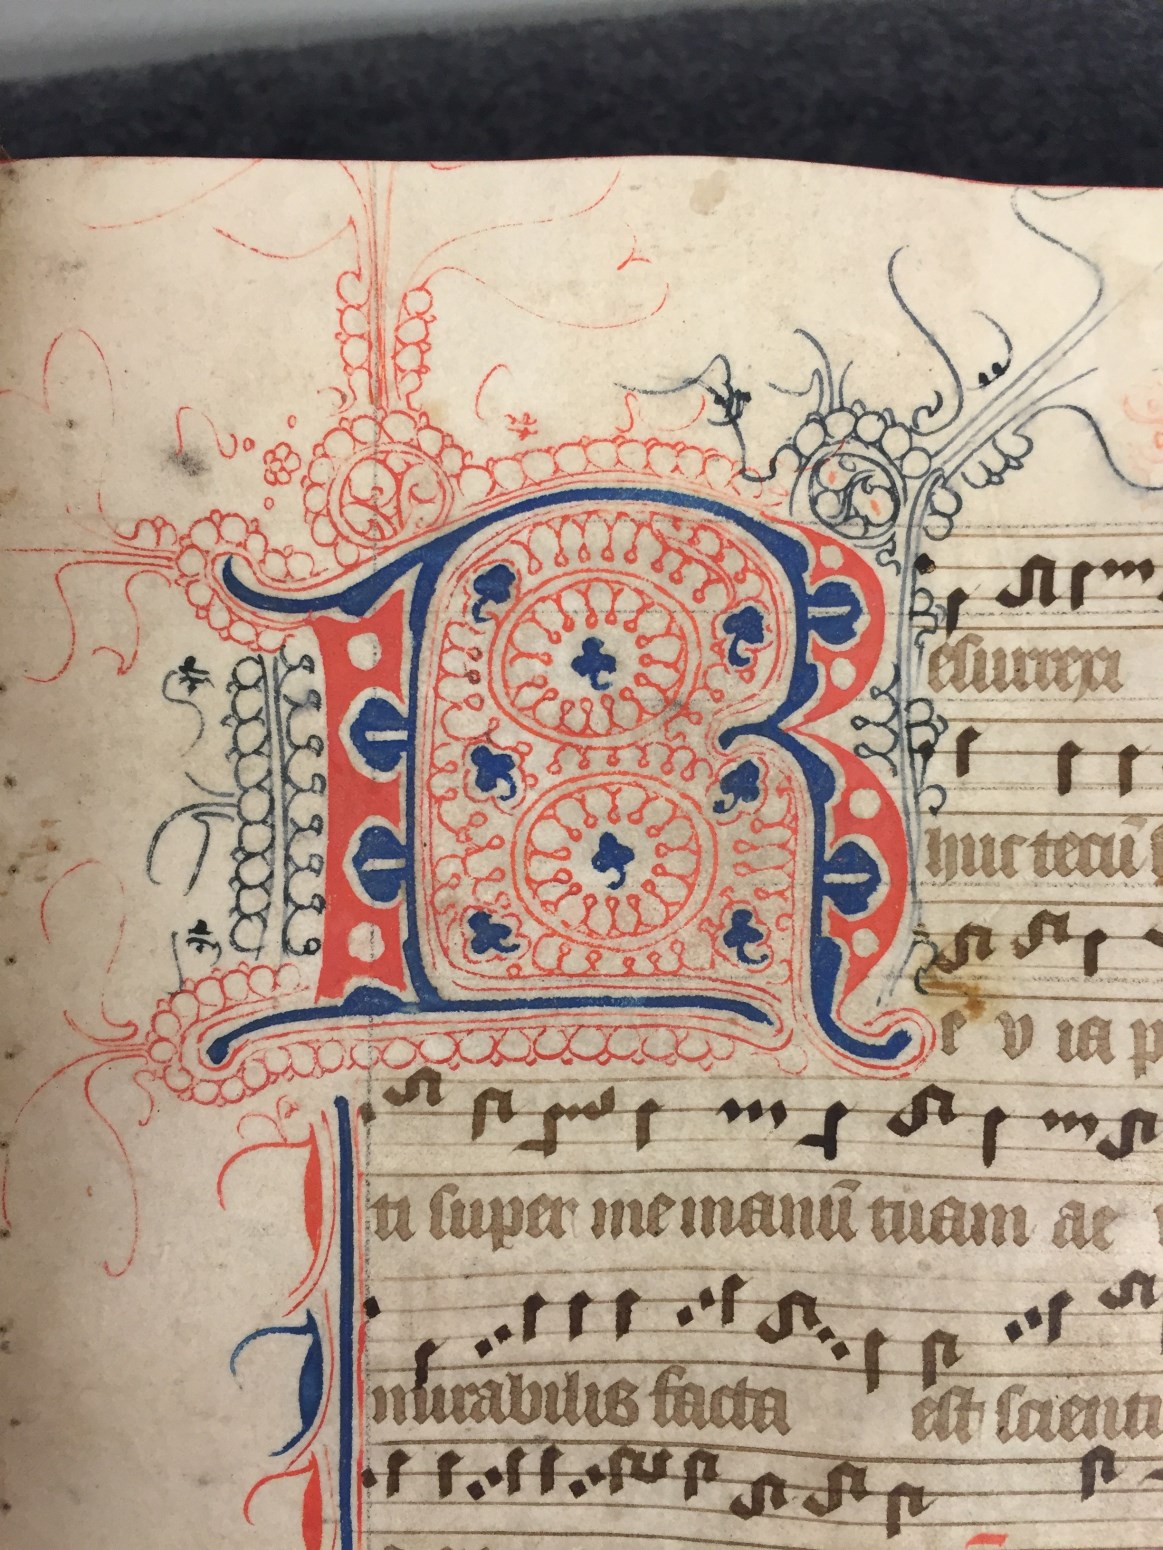 Resurrexi
huc tecū
e v ia p
ti super me manū tuam ae
mirabilis facta est scienti